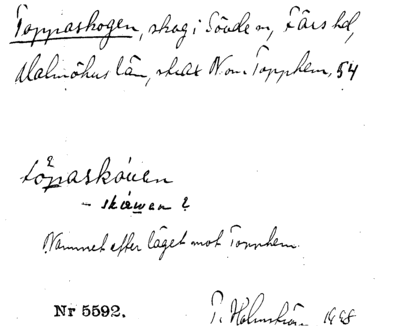 Toppaskogen, skog i Sövde sn, Färs hd,
Malmöhus län, strax N om Topphem, 54
töpaskóuen
- skáwan ?
Namnet efter läget mot Topphem.
Nr 5592.
P. Holmström 1928